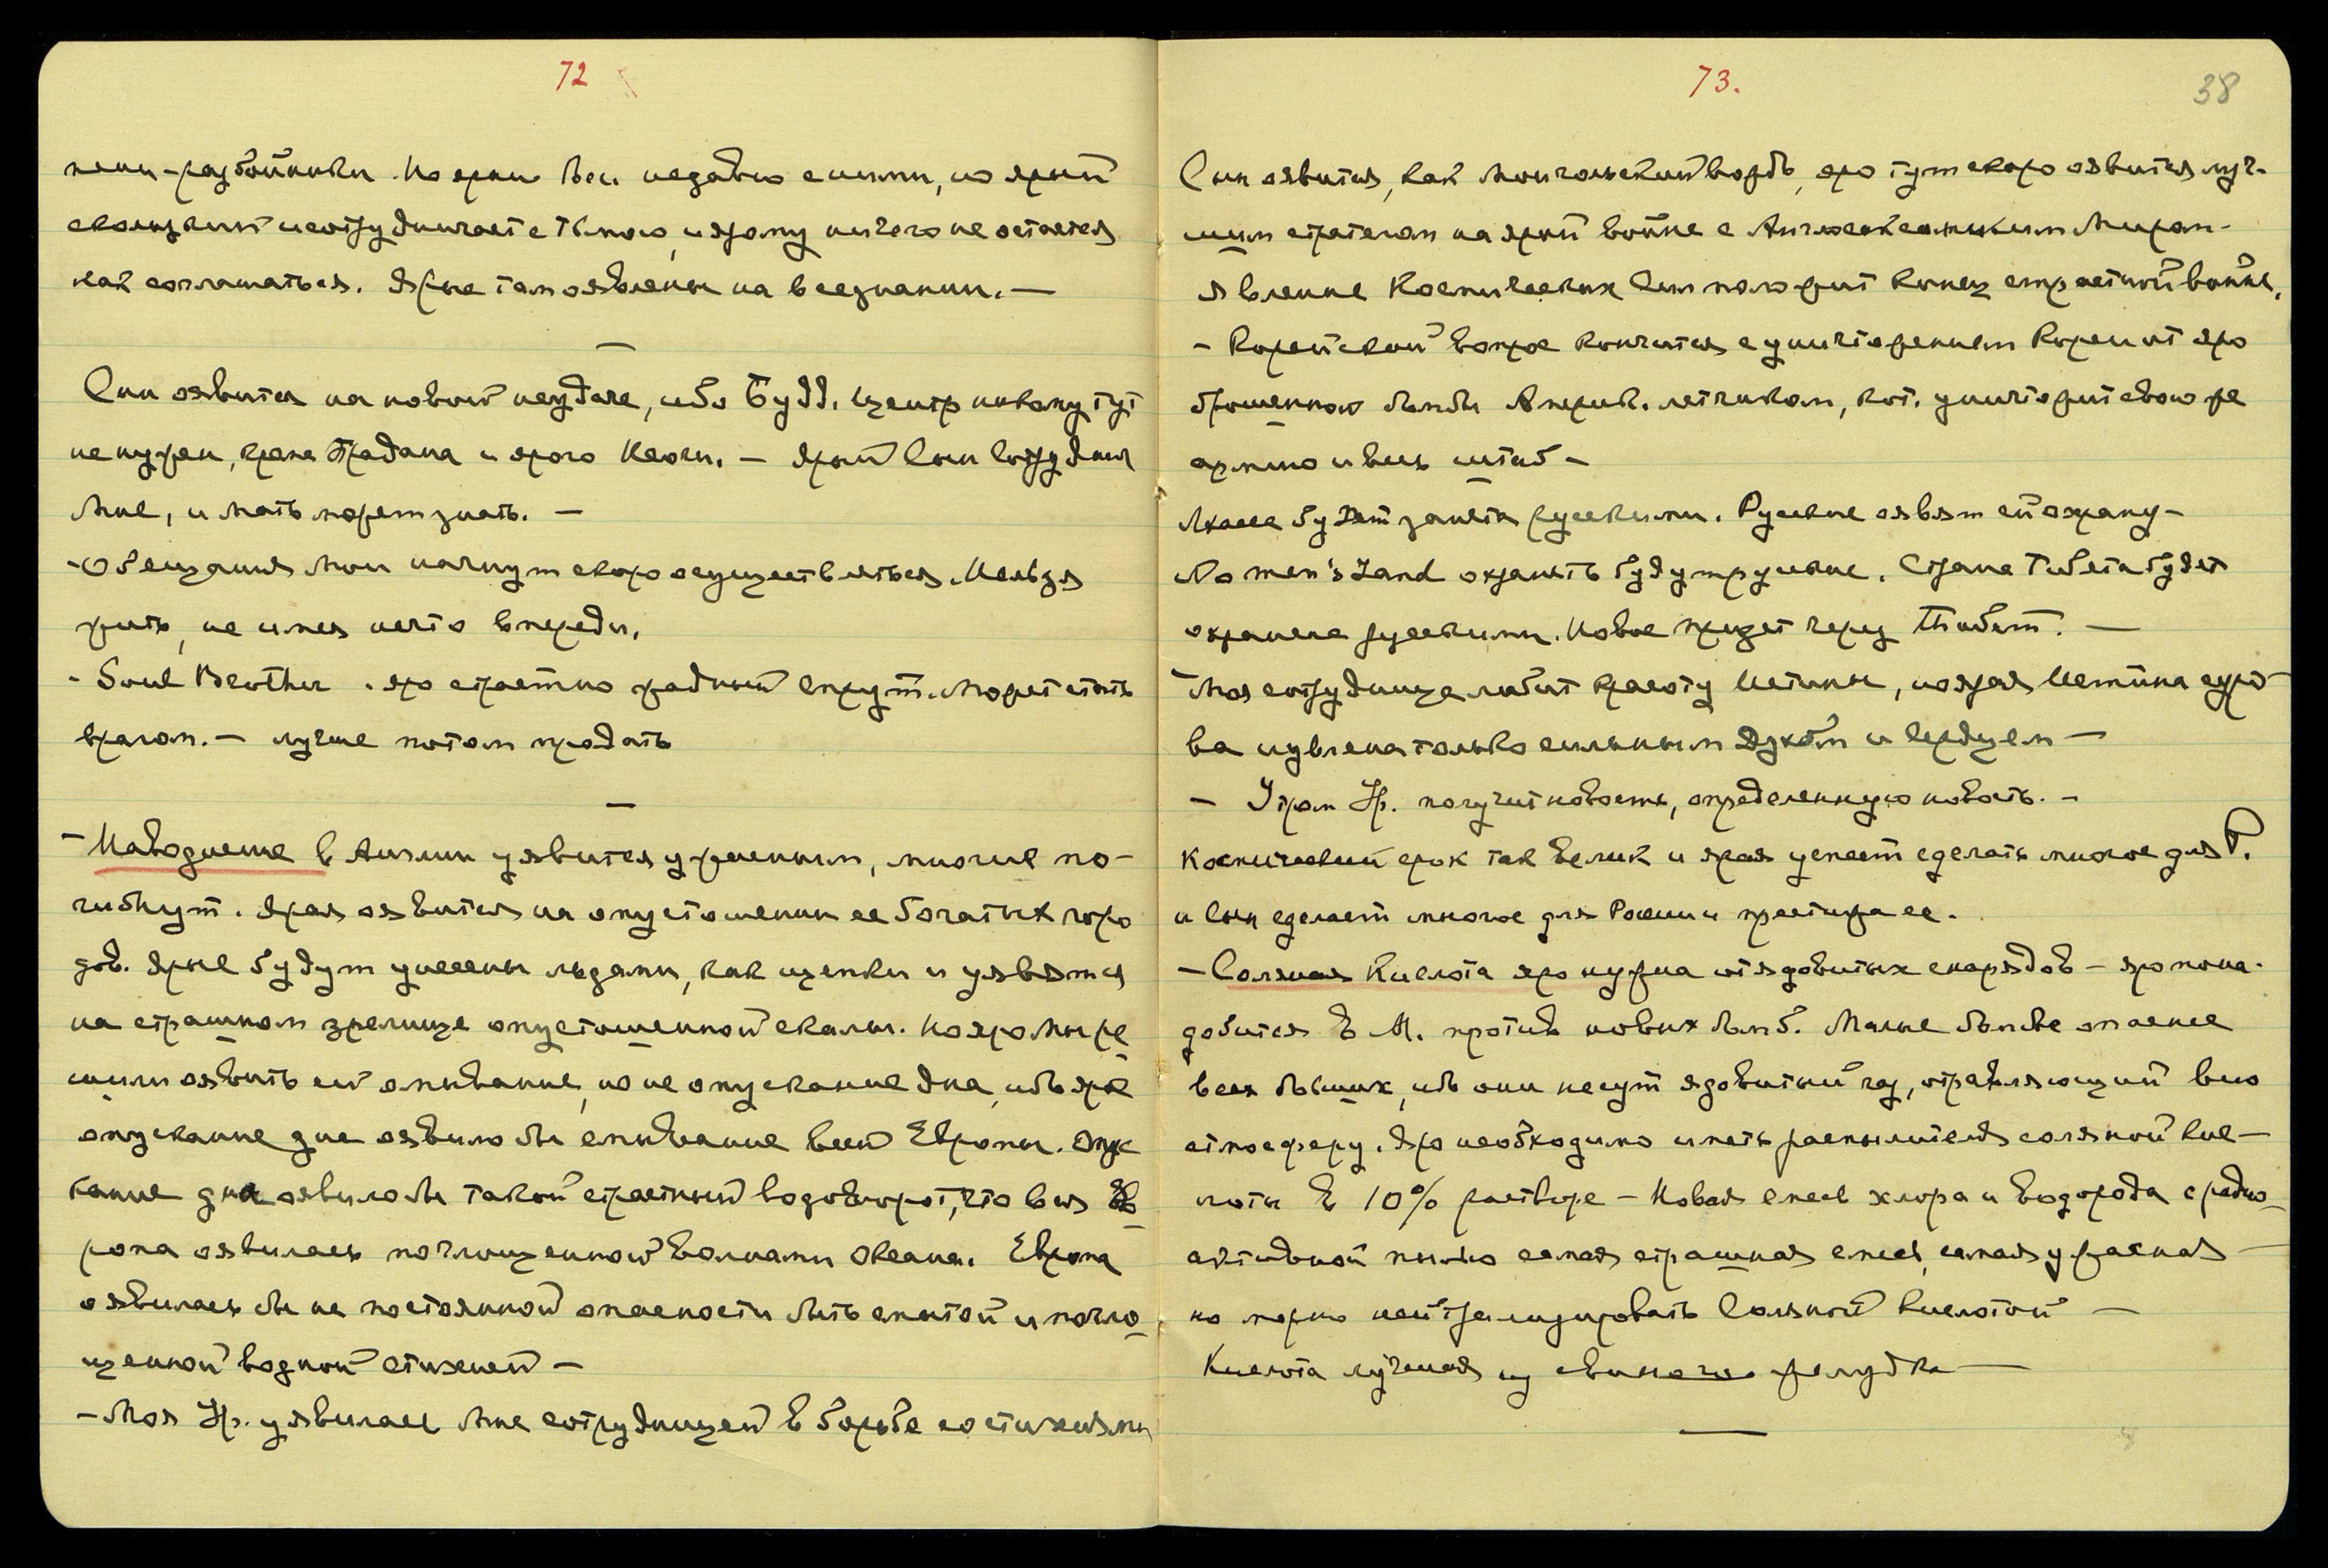 72
разбойники. Но ярый Вен. недавно с ними, но ярый
скользкий и сотрудничает с Тьмою, и ярому ничего не остается
как соглашаться. Ярые там оявлены на всезнании. —
—
Син оявится на новой неудаче, ибо Будд. Центр никому тут
не нужен, кроме Прадана и ярого Кеоги. — Ярый Сын Сотрудник
Мне, и мать может знать. —
- Обещания Мои начнут скоро осуществляться. Нельзя
жить, не имея нечто впереди.
- Soul Brother . яро страстно жадный спрут. Может стать
врагом. — лучше потом продать
—
- Наводнение в Англии уявится ужасным, многие по-
гибнут. Ярая оявится на опустошении ее богатых горо
дов. Ярые будут унесены льдами, как щепки и уявятся
на страшном зрелище опустошенной скалы. Но яро Мы ре
шили оявить ей омывание, но не опускание дна, ибо ярое
опускание дна оявило бы смывание всей Европы. Опус
кание дна оявило бы такой страстный водоворот, что вся Ев
ропа оявилась поглощенной волнами океана. Европа
оявилась бы на постоянной опасности быть смытой и погло
щенной водной стихией —
- Моя Ур. уявилась Мне сотрудницей в борьбе со стихиями
73.
38
Син оявится, как Монгольский вождь, яро тут скоро оявится луч-
шим стратегом на ярой войне с Англосаксонским Миром -
явление Космических Сил положит конец страстной войне.
- Корейский вопрос кончится с уничтожением Кореи от яро
брошенной бомбы Америк. летчиком, кот. уничтожит свою же
армию и весь штаб -
Лхаса будет занята русскими. Русские оявят ей охрану -
No men's Land охранять будут русские. Страна Тибета будет
охранена русскими. Новое придет через Тибет. —
- Моя сотрудница любит красоту Истины, но ярая Истина суро
ва и явлена только сильным духом и сердцем —
- Утром Ур. получит новость, определенную новость. -
Космический срок так велик и ярая успеет сделать многое для Р.
и Сын сделает многое для России и престижа ее.
- Соляная Кислота яро нужна от ядовитых снарядов - яро пона-
добится в М. против новых бомб. Малые бомбы опаснее
всех больших, ибо они несут ядовитый газ, отравляющий всю
атмосферу. Яро необходимо иметь распылителя соляной кис-
лоты в 10% растворе - Новая смесь хлора и водорода с радио
активной пылью самая страшная смесь, самая ужасная —
но можно нейтрализировать Соляной кислотой —
Кислота лучшая из свиного желудка —